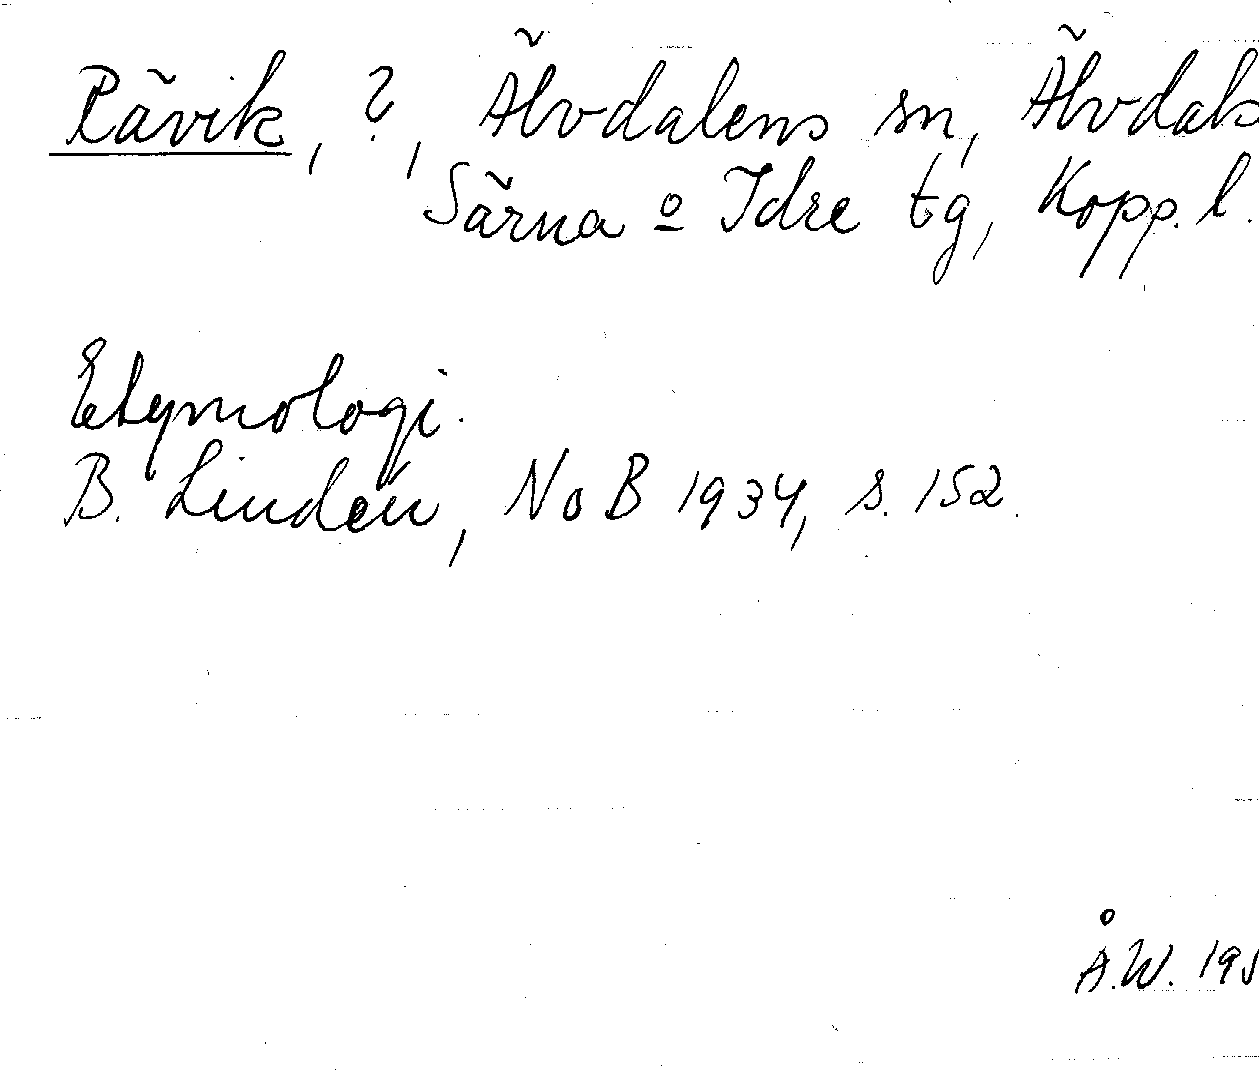 Rävik, ?, Älvdalens sn, Älvdals
Särna o Idre tg, Kopp. l.
Etymologi.
B. Lindén, NoB 1934, s. 152.
Å.W. 195